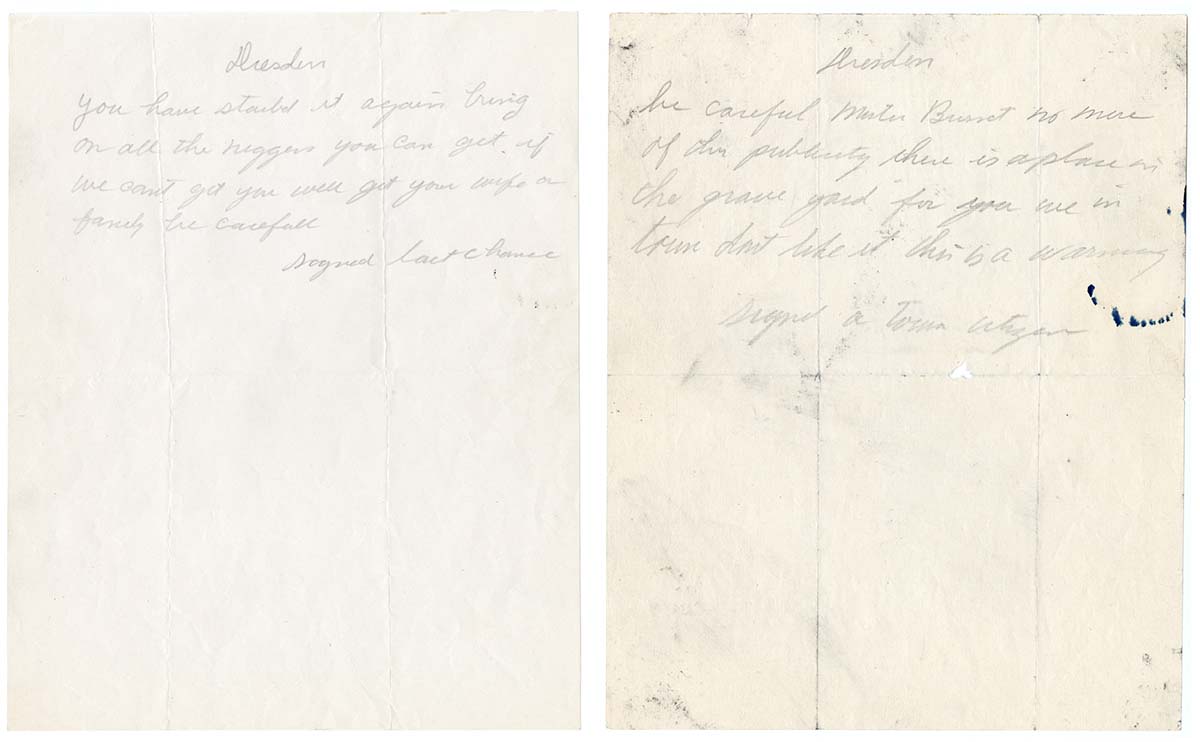 Dresden
you have started it again bring
on all the niggers you can get. if
we cant get you well get your wife or
family be carefull
signed last chance
Dresden
be careful Mister Burnet no more
of this publicity there is a place in
the grave yard for you we in
town dont like it this is a warning
signed a town citizen